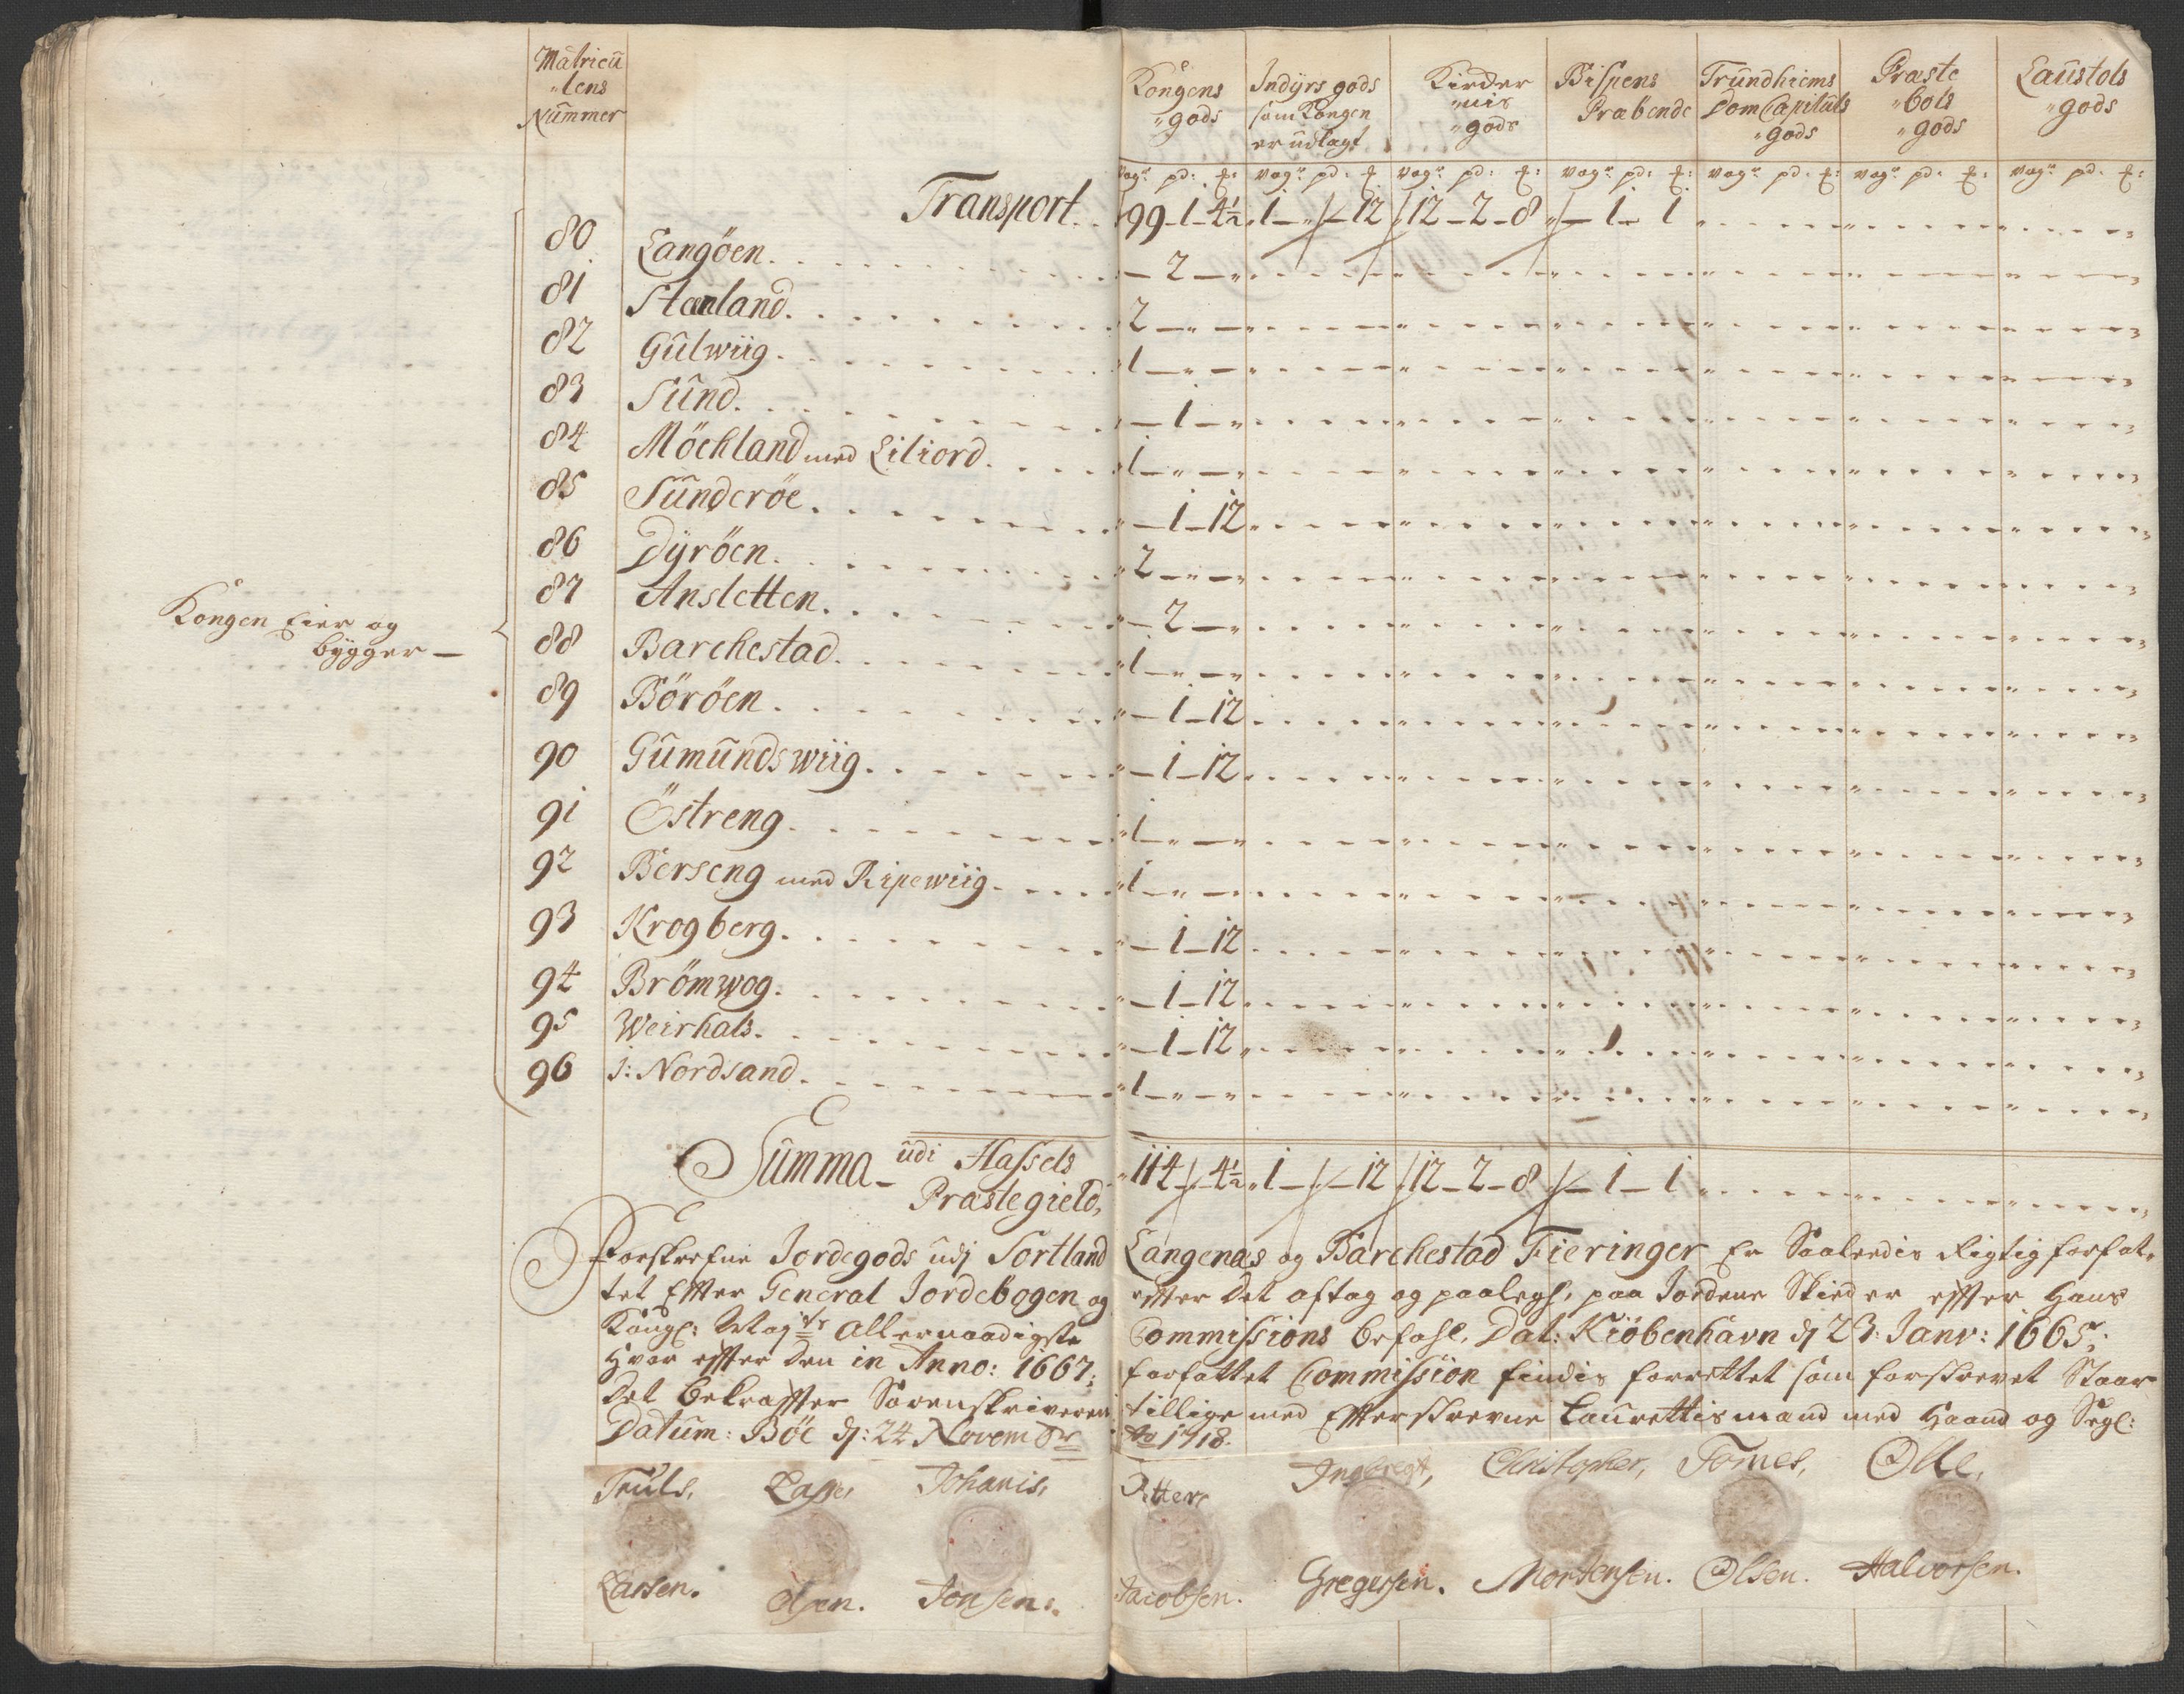 Matricu
"lens
Nummer
Kongens
"gods
Indÿrs gods
som Kongen
er udlagt
Kircker
"nis
"gods
Bispens
Præbende
Trundhiems
Dom Capituls
"gods
Præste
"bols
"gods
Laustols
"gods
vog: pd: £: vog: pd: £ vog: pd: £: vog: pd: £: vog: pd: £: vog: pd: £: vog: pd: £:
Transport. 99-1-4½ 1-"-12 12-2-8 "-1-1
80 Langöen. "-2-"
81 Stenland. 2-"-"
82 Gulwiig. 1-"-"
83 Sund. "-1-"
84 Möchland med Liliord. 1-"-"
85 Sunderöe. "-1-12
86 Dÿröen. 2-"-"
87 Ansletten. "-2-"
88 Barchestad. 1-"-"
89 Böröen. "-1-12
90 Gumundswiig. "-1-12
91 Östreng. 1-"-"
92 Berseng med Ripewiig. 1-"-"
93 Krogberg. "-1-12
94 Brömwog. "-1-12
95 Weirhals. "-1-12
96 J: Nordsand. 1-"-"
Kongen Eier og
bÿgger -
Summa - udi Hassels
Præstegield, 114-"-4½ 1-"-12 12-2-8 "-1-1
Forskrefne Jordegods udj Sortland Langenæs og Barchestad Fieringer er Saaledis Rigtig forfat,
tet Efter General Jordebogen og efter det aftag og paalegh, paa Jordene Skied er efter Hans
Kongl: Mayts Allernaadigste Commissions befahl, Dat: Kiöbenhavn dj 23: Janv: 1665;
Hvor efter den in Anno: 1667; forfattet Commission findis forrettet som forskrevet Staar
Det bekræfter Sorenskriveren tillige med Efterskrevne Laurettismænd med Haand og Segl:
Datum: Böe dj: 24 Novembr Ao 1718.
Truls, Lasse, Johanis, Petter, Ingbregt, Christopher, Tomes, Olle,
Larsen. Olsen. Jonsen. Jacobsen. Gregersen. Mortensen. Olsen. Halvorsen.